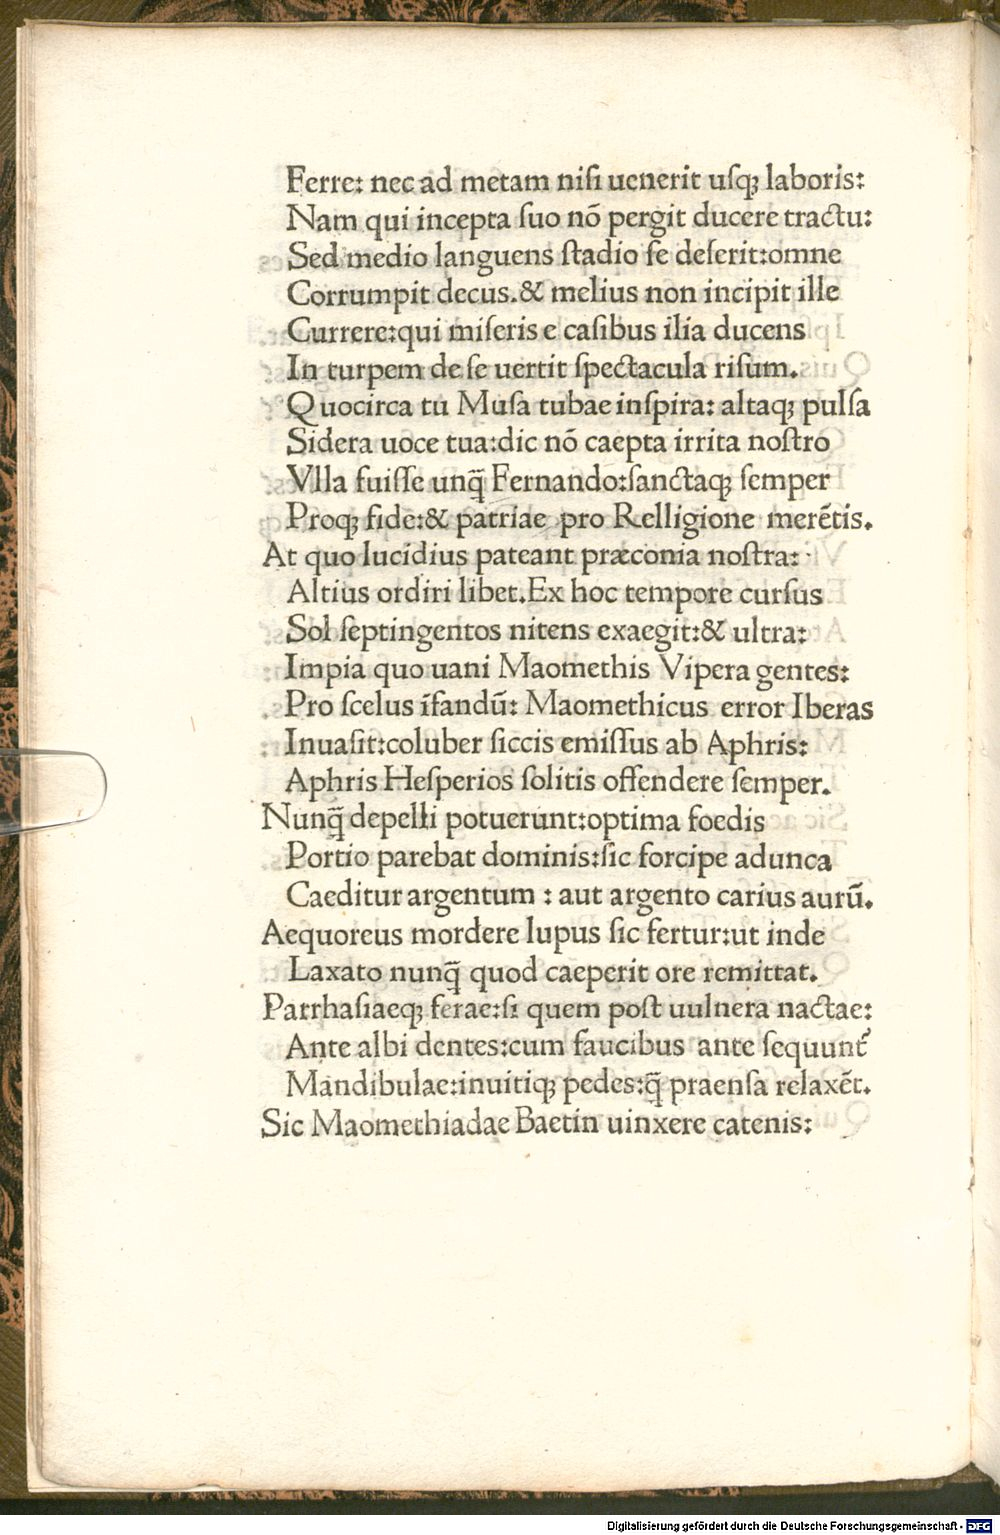 Ferre: nec ad metam niſi uenerit uſqꝫ laboris:
Nam qui incepta ſuo nō pergit ducere tractu:
Sed medio languens ſtadio ſe deſerit:omne
Corrumpit decus.& melius non incipit ille
Currere:qui miſeris e caſibus ilia ducens
In turpem de ſe uertit ſpectacula riſum.
Quocirca tu Muſa tubae inſpira: altaqꝫ pulſa
Sidera uoce tua:dic nō caepta irrita noſtro
Vlla fuiſſe unq̄ Fernando:ſanctaqꝫ ſemper
Proqꝫ fide:& patriae pro Relligione merētis.
At quo lucidius pateant præconia noſtra:
Altius ordiri libet.Ex hoc tempore curſus
Sol ſeptingentos nitens exaegit:& ultra:
Impia quo uani Maomethis Vipera gentes:
Pro ſcelus īfandū: Maomethicus error Iberas
Inuaſit:coluber ſiccis emiſſus ab Aphris:
Aphris Heſperios ſolitis offendere ſemper.
Nunq̄ depelli potuerunt:optima foedis
Portio parebat dominis:ſic forcipe adunca
Caeditur argentum : aut argento carius aurū.
Aequoreus mordere lupus ſic fertur:ut inde
Laxato nunq̄ quod caeperit ore remittat.
Parrhaſiaeqꝫ ferae:ſi quem poſt uulnera nactae:
Ante albi dentes:cum faucibus ante ſequunt᷑
Mandibulae:inuitiqꝫ pedes:q̄ praenſa relaxēt.
Sic Maomethiadae Baetin uinxere catenis:
Digitalisierung gefördert durch die Deutsche Forschungsgemeinschaft - DFG